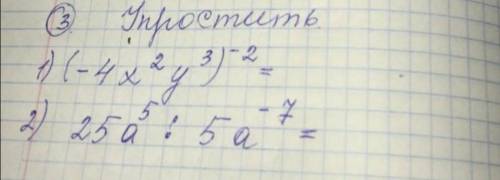 ③ Упростить.
1) (-4x²y³)⁻² =
2) 25a⁵ : 5a⁻⁷ =